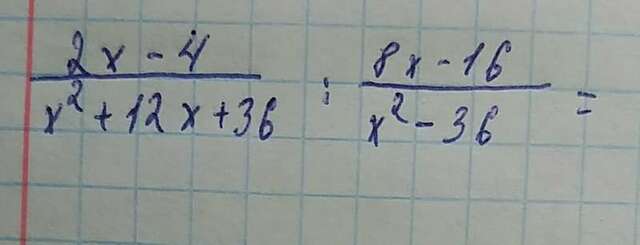 2x - 4 / x² + 12x + 36 : 8x - 16 / x² - 36 =